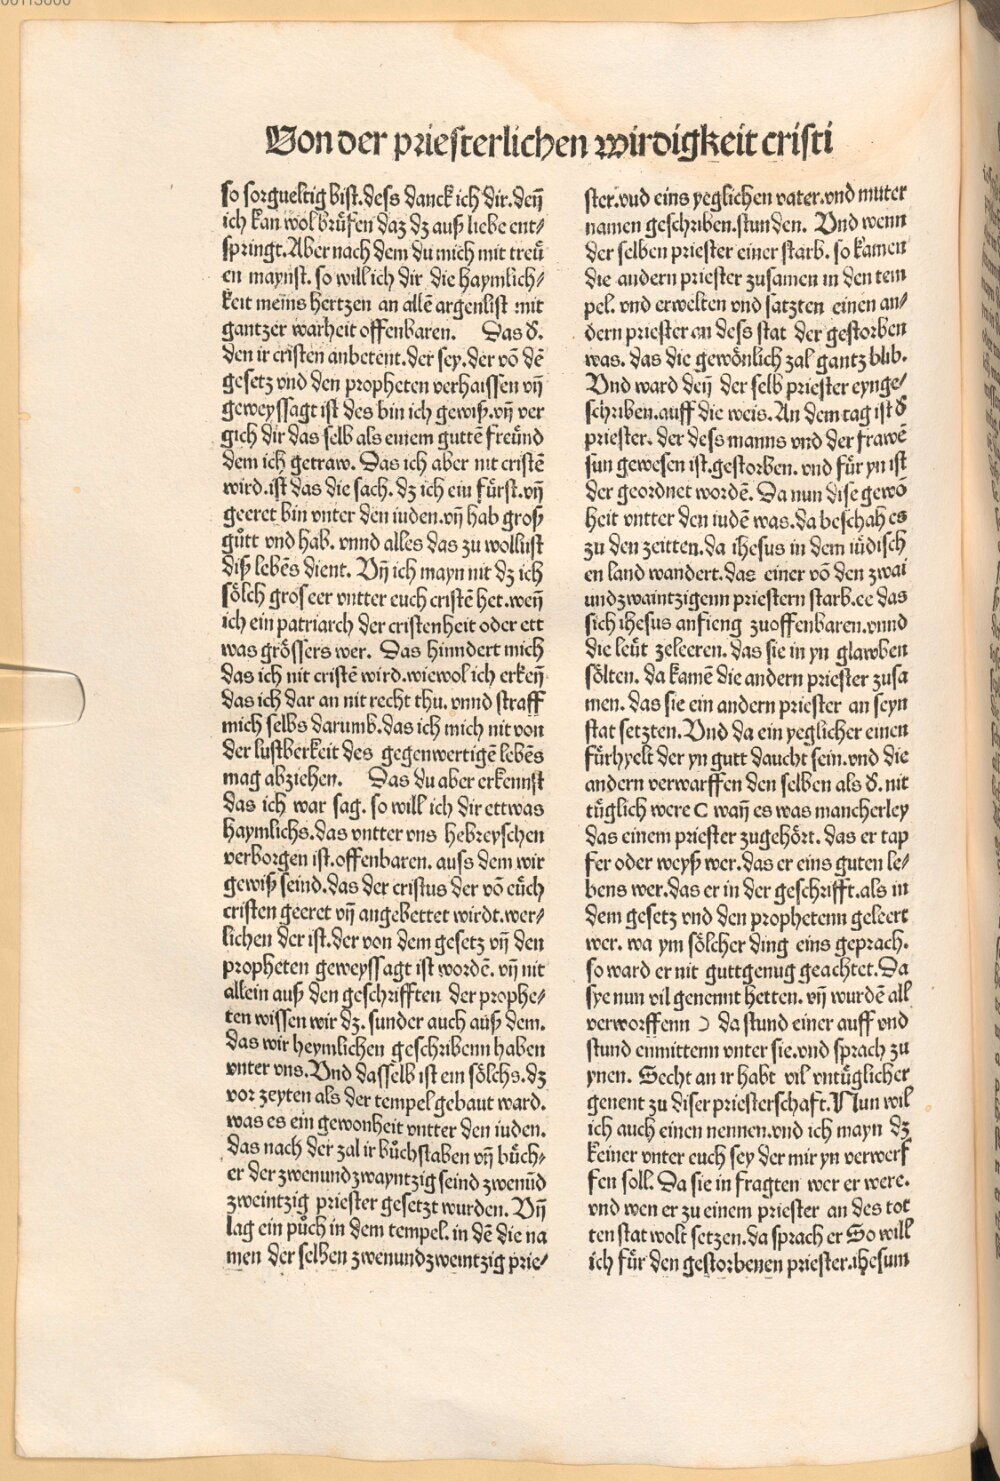 Von der priesterlichen wirdigkeit cristi
so sorgueltig bist. dess danck ich dir. deñ
ich kan wol brüfen daz dz auß liebe ent⸗
springt. Aber nach dem du mich mit treü
en maynst. so will ich dir die haymlich⸗
keit meins hertzen an allē argenlist mit
gantzer warheit offenbaren. Das d̕.
den ir cristen anbetent. der sey. der vō dē
gesetz vnd den propheten verhaissen vñ
geweyssagt ist des bin ich gewiß. vñ ver
gich dir das selb als einem guttē freünd
dem ich getraw. Das ich aber nit cristē
wird. ist das die sach. dz ich ein fürst. vñ
geeret bin vnter den iuden. vñ hab groß
gůtt vnd hab. vnnd alles das zu wollust
diß lebēs dient. Vñ ich mayn nit dz ich
sölch gros eer vntter euch cristē het. weñ
ich ein patriarch der cristenheit oder ett
was grössers wer. Das hinndert mich
das ich nit cristē wird. wiewol ich erkeñ
das ich dar an nit recht thu. vnnd straff
mich selbs darumb. das ich mich nit von
der lustberkeit des gegenwertigē lebēs
mag abziehen. Das du aber erkennst
das ich war sag. so will ich dir ettwas
haymlichs. das vntter vns hebreyschen
verborgen ist. offenbaren. auss dem wir
gewiß seind. das der cristus der vō eüch
cristen geeret vñ angebettet wirdt. wer⸗
lichen der ist. der von dem gesetz vñ den
propheten geweyssagt ist wordē. vñ nit
allein auß den geschrifften der prophe⸗
ten wissen wir dz. sunder auch auß dem.
das wir heymlichen geschribenn haben
vnter vns. Vnd dasselb ist ein sölchs. dz
vor zeyten als der tempel gebaut ward.
was es ein gewonheit vntter den iuden.
das nach der zal ir bůchstaben vñ bůch⸗
er der zwenundzwayntzig seind zwenūd
zweintzig priester gesetzt wurden. Vñ
lag ein půch in dem tempel. in dē die na
men der selben zwenundzweintzig prie⸗
ster. vud eins yeglichen vater. vnd muter
namen geschriben. stunden. Vnd wenn
der selben priester einer starb. so kamen
die andern priester zusamen in den tem
pel. vnd erwelten vnd satzten einen an⸗
dern priester an dess stat der gestorben
was. das die gewönlich zal gantz blib.
Vnd ward deñ der selb priester eynge⸗
schriben. auff die weis. An dem tag ist d̕
priester. der dess manns vnd der frawē
sun gewesen ist. gestorben. vnd für yn ist
der geordnet wordē. Da nun dise gewō
heit vntter den iudē was. da beschah es
zu den zeitten. da ihesus in dem iüdisch
en land wandert. das einer vō den zwai
undzwaintzigenn priestern starb. ee das
sich ihesus anfieng zuoffenbaren. vnnd
die leüt zeleeren. das sie in yn glawben
sölten. da kamē die andern priester zusa
men. das sie ein andern priester an seyn
stat setzten. Vnd da ein yeglicher einen
fürhyelt der yn gutt daucht sein. vnd die
andern verwarffen den selben als d̕. nit
tüglich were ( wañ es was mancherley
das einem priester zugehört. das er tap
fer oder weyß wer. das er eins guten le⸗
bens wer. das er in der geschrifft. als in
dem gesetz vnd den prophetenn geleert
wer. wa ym sölcher ding eins geprach.
so ward er nit guttgenug geachtet. Da
sye nun vil genennt hetten. vñ wurdē all
verworffenn ) da stund einer auff vnd
stund enmittenn vnter sie. vnd sprach zu
ynen. Secht an ir habt vil vntüglicher
genent zu diser priesterschaft. Nun wil
ich auch einen nennen. vnd ich mayn dz
keiner vnter euch sey der mir yn verwerf
fen soll. Da sie in fragten wer er were.
vnd wen er zu einem priester an des tot
ten stat wolt setzen. da sprach er So will
ich für den gestorbenen priester. ihesum